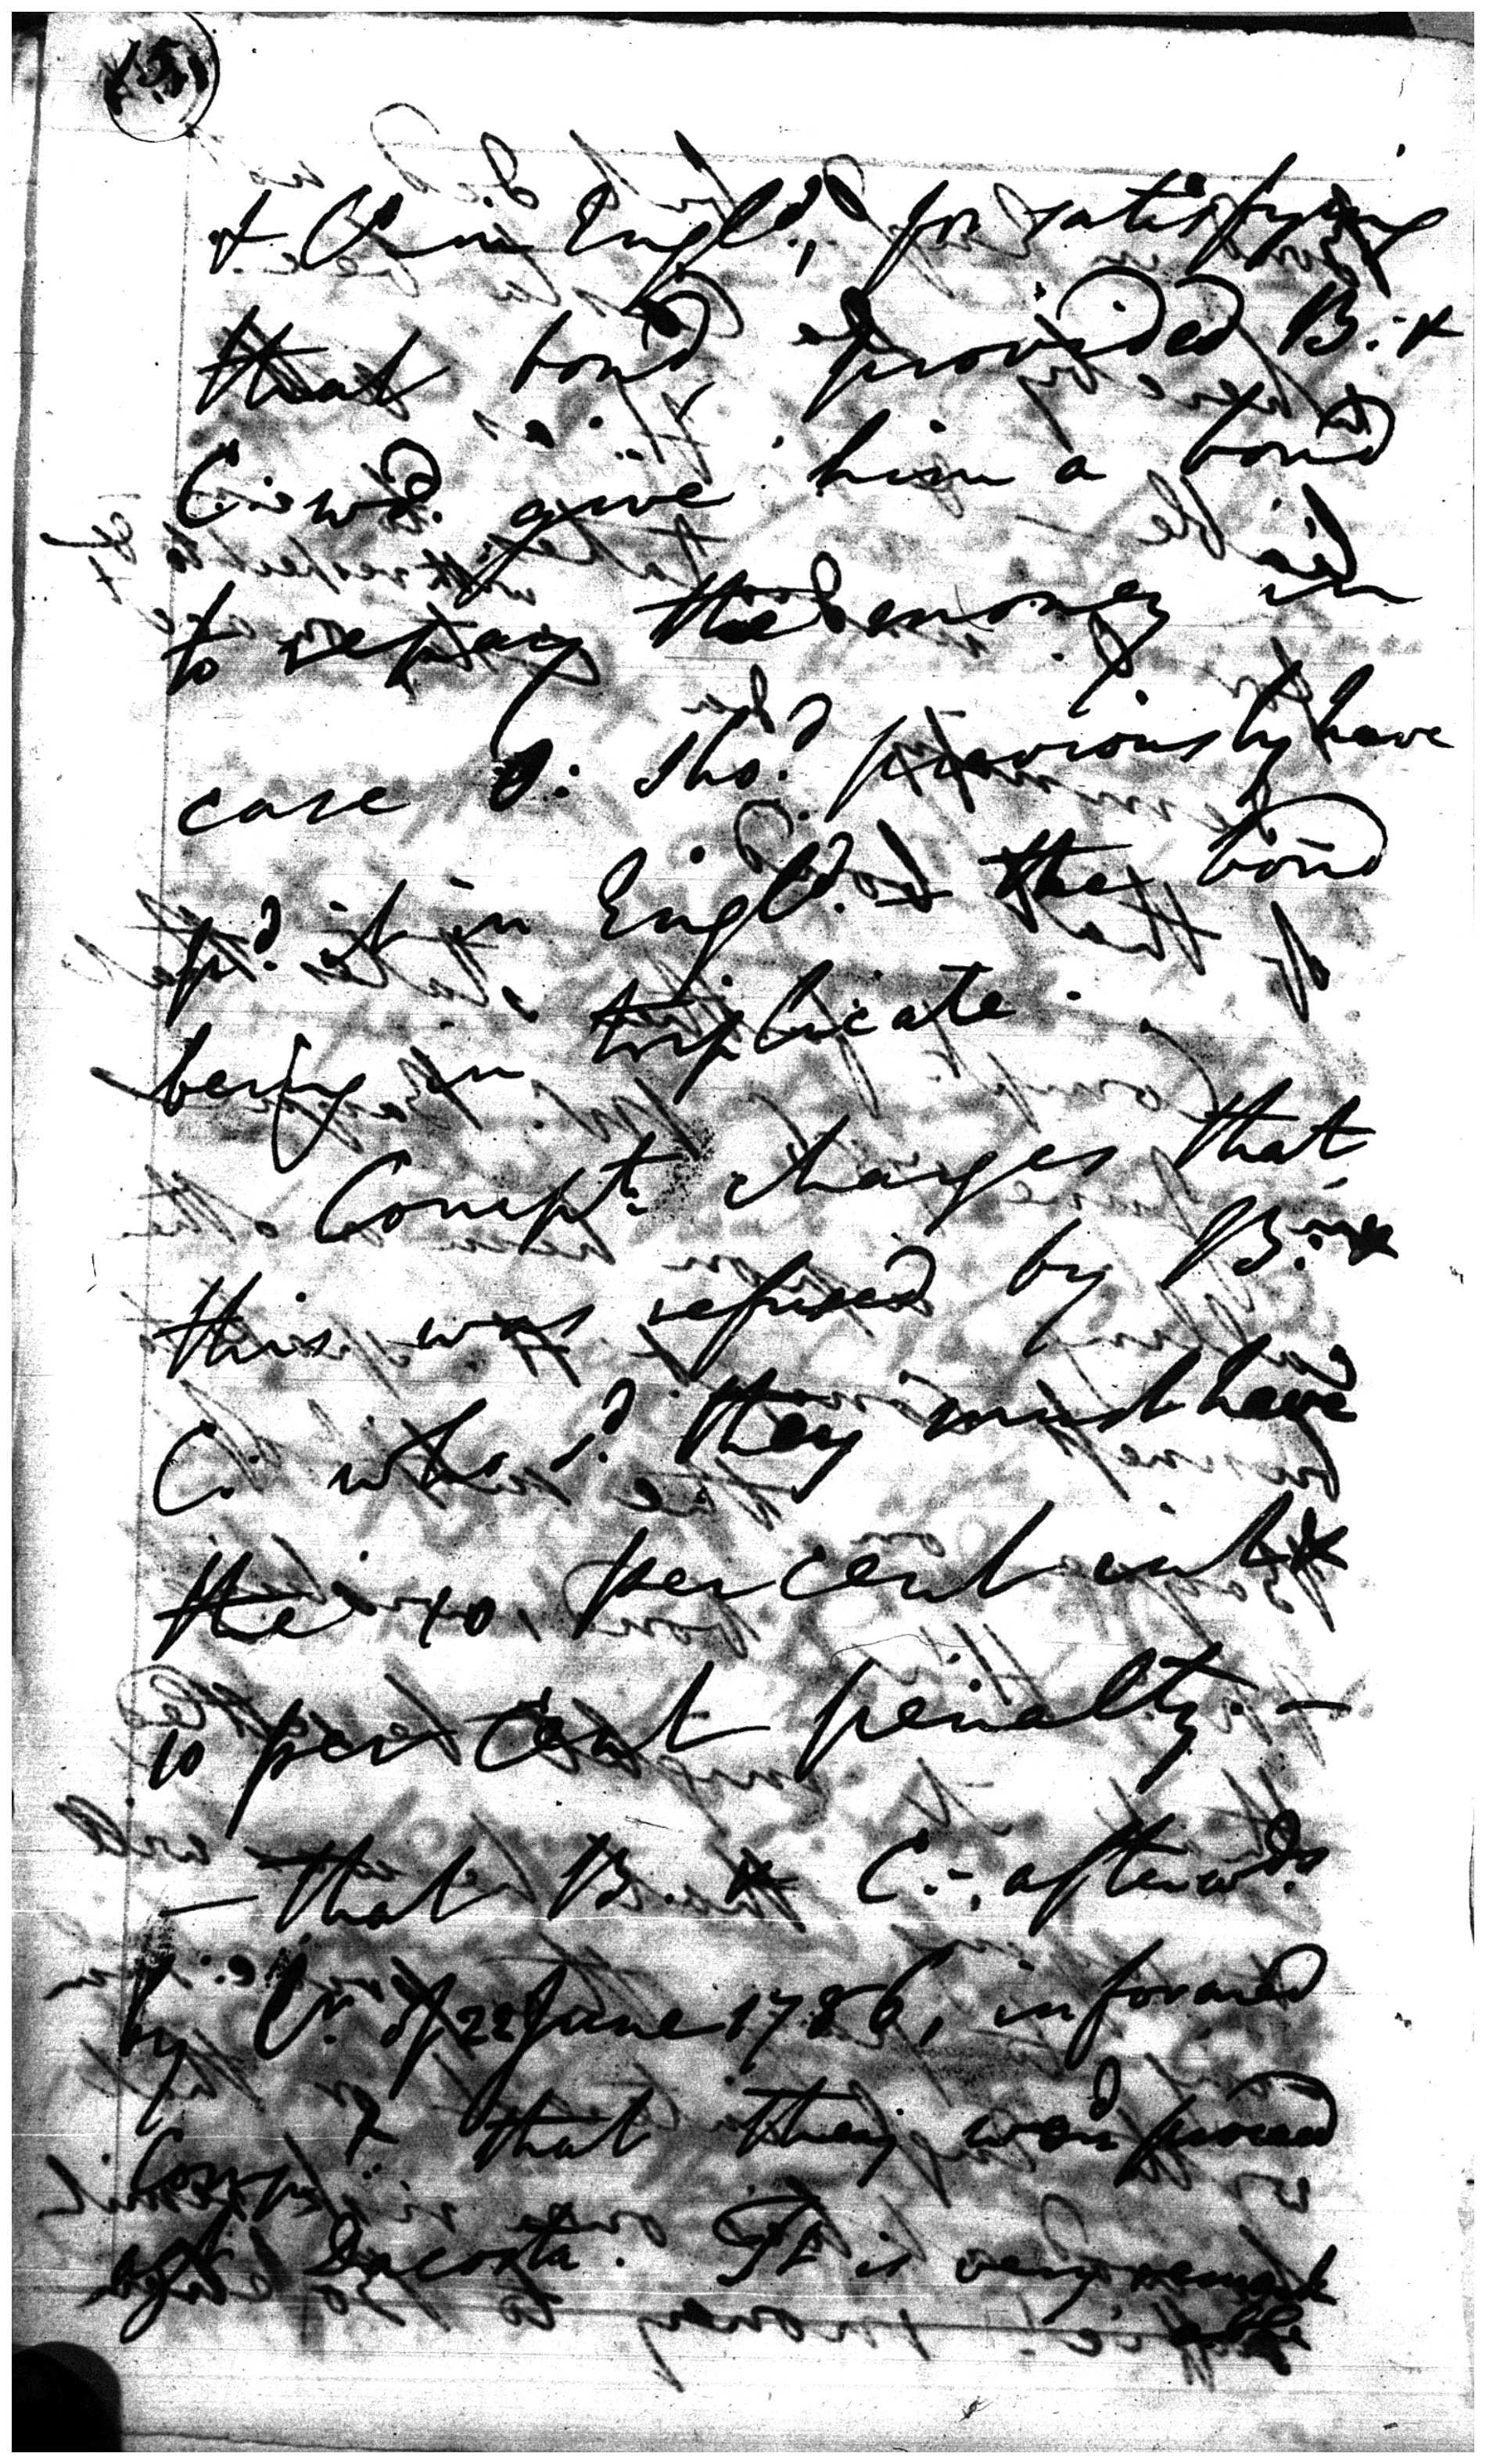 15
& C. in Engld., for satisfying
that bond provided B. &
C. wd. give him a bond
to repay the money in
case D. shod. previously have
pd. it in Engld. & the bond
being in triplicate.
Compt. charges that
this was refused by B. &
C. who sd. they must have
the 10, per cent int. &
10 per Cent penalty. —
— that B. & C. afterwds.
by Lr. of 22 June 1786, informed
Compt. that they wod. proceed
agt. Dacosta. It is very remark
able